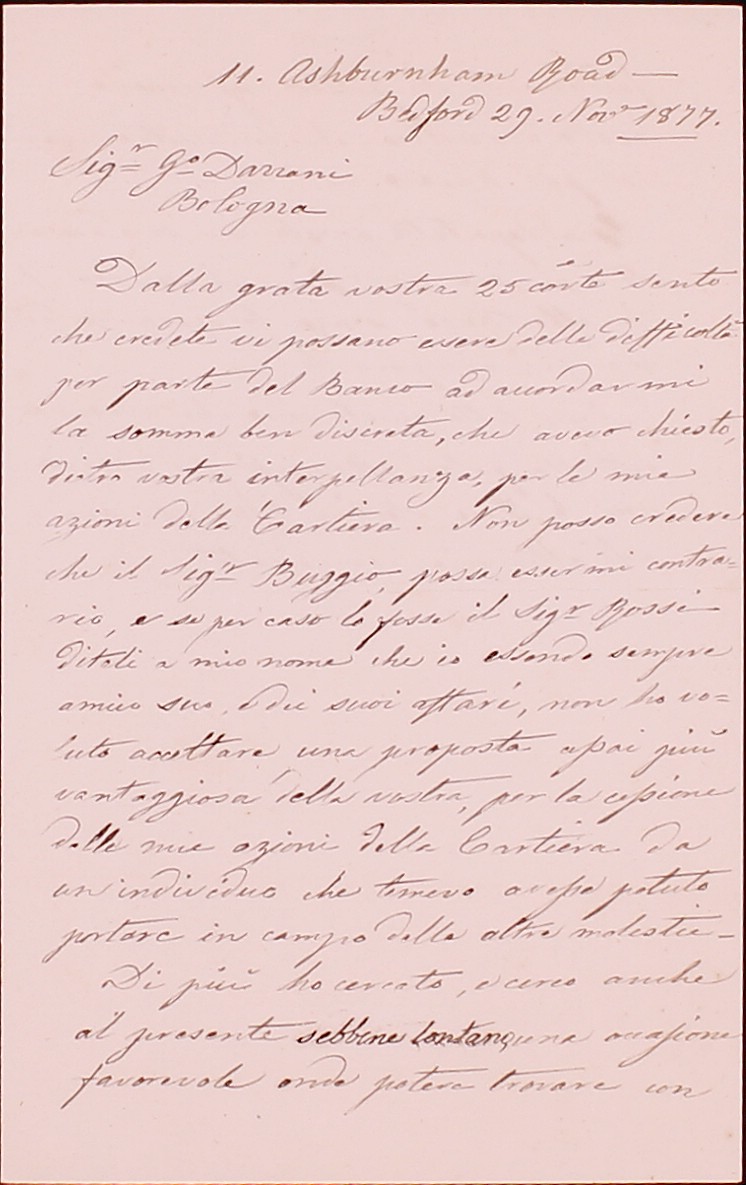 11. Ashburnham Road —
Bedford 29. Novr 1877.
Sigr Go Darrani
Bologna
Dalla grata vostra 25 corte sento
che credete vi possano essere delle difficoltà
per parte del Banco ad accordarmi
la somma ben discreta, che avevo chiesto,
dietro vostra interpellanza, per le mie
azioni della Cartiera. Non posso credere
che il Sigr Buggio, possa essermi contra=
rio, e se per caso lo fosse il Sigr Rossi
ditele a mio nome che io essendo sempre
amico suo, e dei suoi affari, non ho vo=
luto accettare una proposta assai più
vantaggiosa della vostra, per la cessione
delle mie azioni della Cartiera da
un individuo che temevo avesse potuto
portare in campo delle altre molestie —
Di più ho cercato, e cerco anche
al presente sebbene lontano, una occasione
favorevole onde potere trovare un